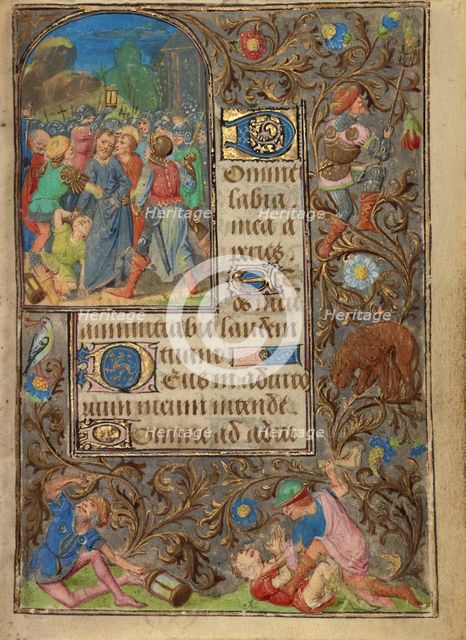 Domine
labia
mea a
peries
Et os meū
annuntiabit laudem
tuam
Deus in adiuto
rium meum intende.
Heritage
Heritage
Heritage
Heritage
Heritage
Heritage